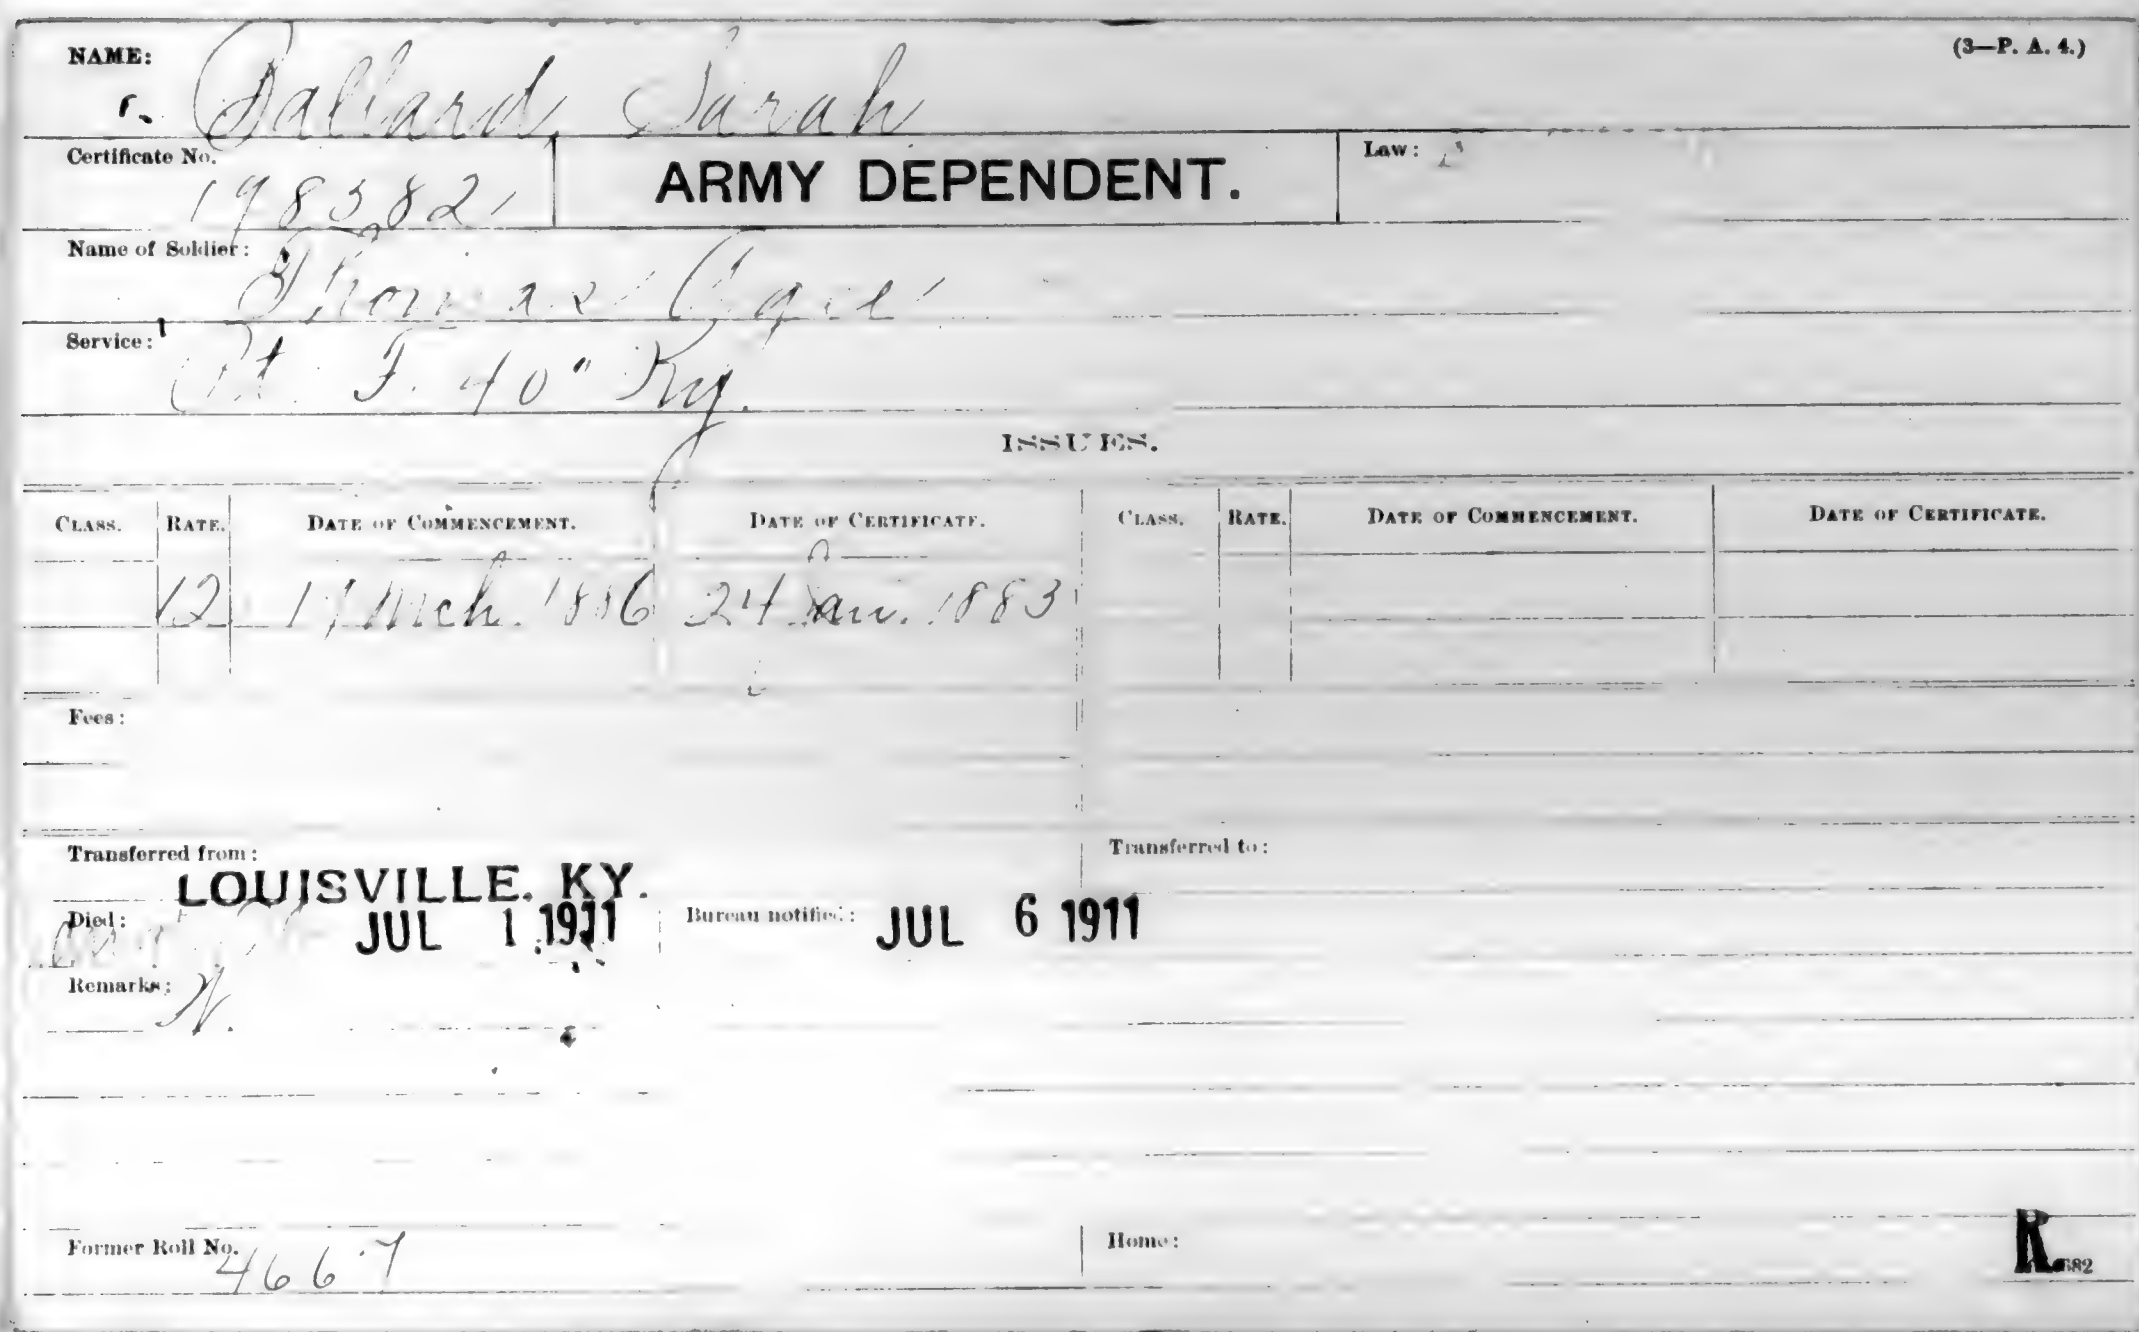 NAME: (3—P. A. 4.)
Ballard, Sarah
Certificate No. ARMY DEPENDENT. Law:
198382
Name of Soldier:
Thomas
Service:
Pt. F. 40" Ky.
ISSUES.
CLASS. RATE. DATE OF COMMENCEMENT. DATE OF CERTIFICATE. CLASS. RATE. DATE OF COMMENCEMENT. DATE OF CERTIFICATE.
12 17 Mch. 1886 24 Jan. 1883
Fees:
Transferred from: Transferred to:
LOUISVILLE, KY.
Died: JUL 1 1911 Bureau notified: JUL 6 1911
Remarks: N.
Former Roll No. 4667 Home:
R